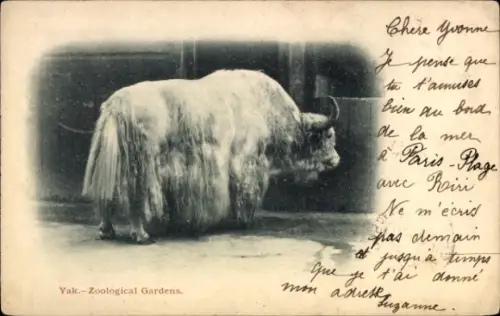 Chere Yvonne
Je pense que
tu t'amuses
bien au bord
de la mer
à Paris-Plage
avec Riri
Ne m'écris
pas demain
et jusqu'à temps
que je t'ai donné
mon adresse
Suzanne.
Yak.—Zoological Gardens.